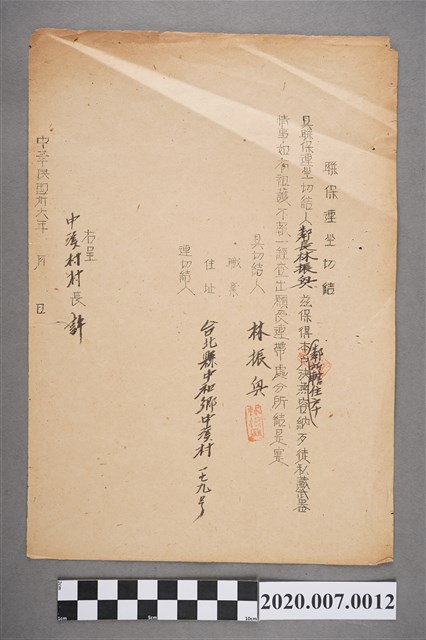 聯保連坐切結
具聯保連坐切結人鄰長林振興茲保得本戶決無容納歹徒私藏武器
(鄰所轄住戶
情事如有祖護不報一經查出願受連帶處分所結是實
具切結人 林振興
職業
住址 台北縣中和鄉中漢村一七九号
連切結人
右呈
中漢村村長 許
中華民國卅六年 月 日
2020.007.0012